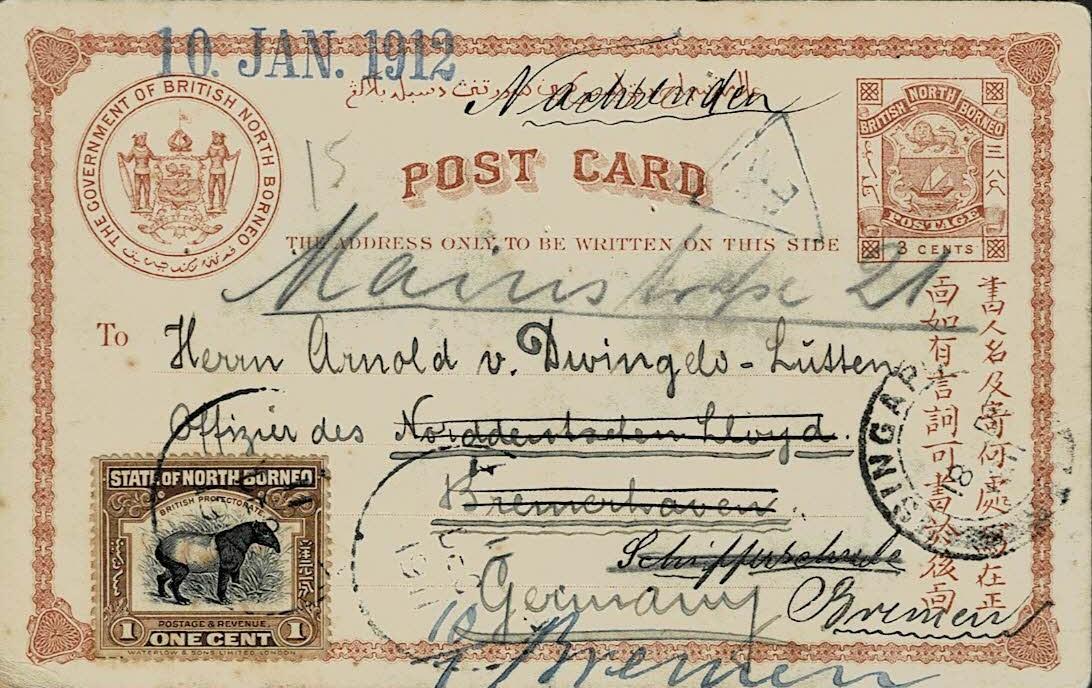 10. JAN. 1912
Nachsenden
THE GOVERNMENT OF BRITISH NORTH BORNEO
15
POST CARD
BRITISH NORTH BORNEO
POSTAGE
3 CENTS
THE ADDRESS ONLY TO BE WRITTEN ON THIS SIDE
Mainstrasse 21
To Herrn Arnold v. Dwingelo-Lütten
Offizier des Norddeutschen Lloyd.
Bremerhaven.
Schiffsschule
Germany
Bremen
Bremen
SINGAP
書人名及寄何處
在正
面如有言詞可書於後面
STATE OF NORTH BORNEO
BRITISH PROTECTORATE
POSTAGE & REVENUE
1 ONE CENT 1
WATERLOW & SONS LIMITED, LONDON